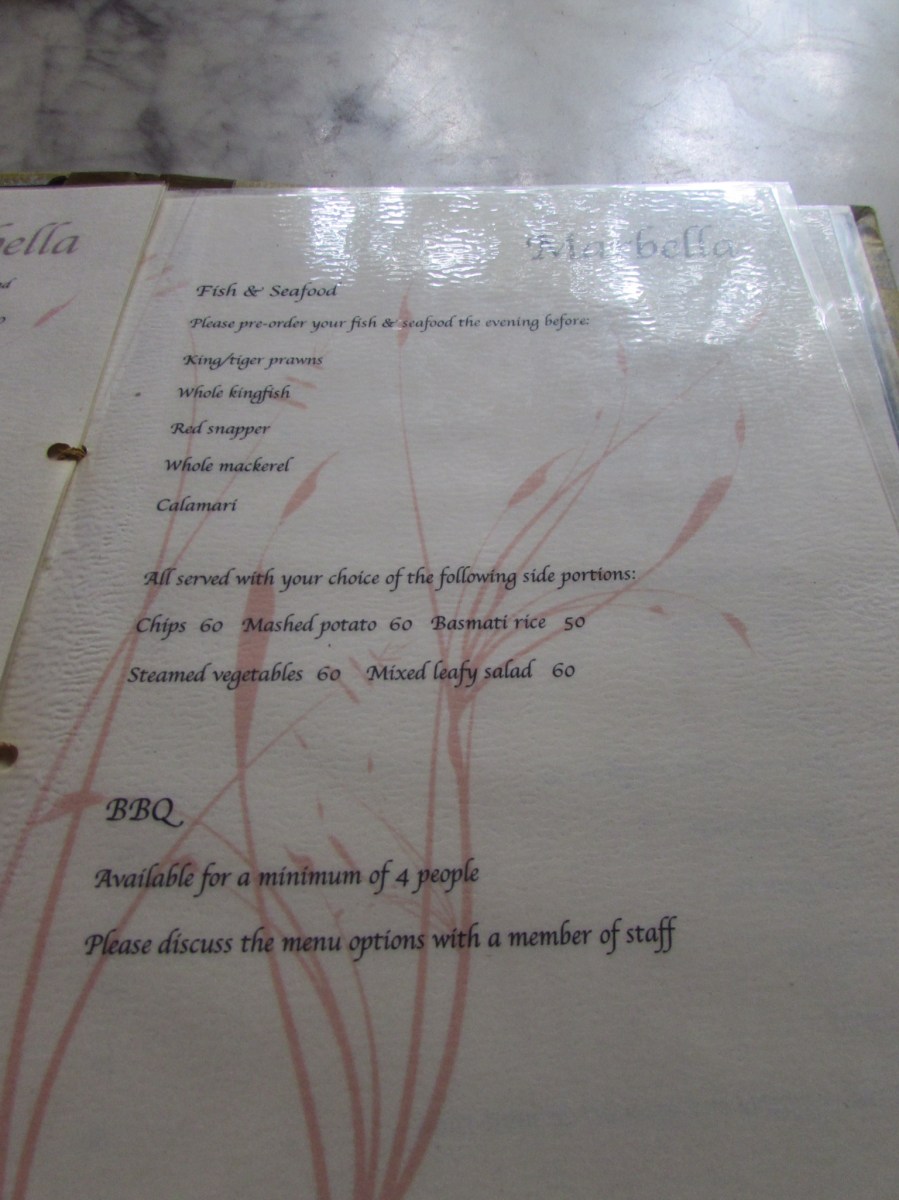 bella
Marbella
Fish & Seafood
Please pre-order your fish & seafood the evening before:
King/tiger prawns
Whole kingfish
Red snapper
Whole mackerel
Calamari
All served with your choice of the following side portions:
Chips 60 Mashed potato 60 Basmati rice 50
Steamed vegetables 60 Mixed leafy salad 60
BBQ
Available for a minimum of 4 people
Please discuss the menu options with a member of staff